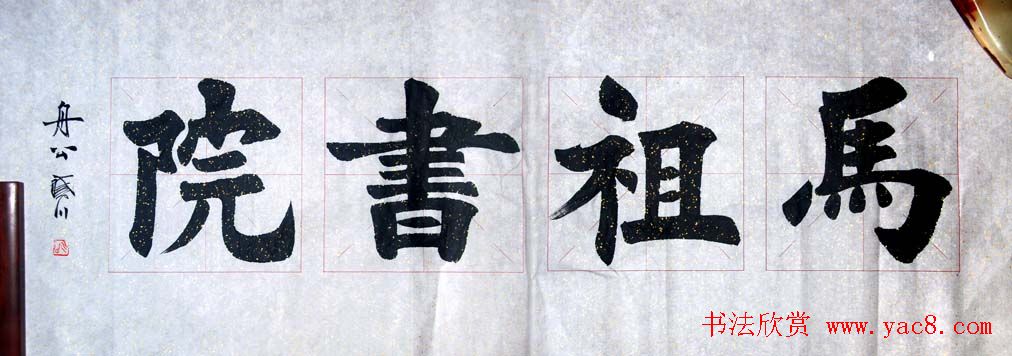 馬祖書院
舟公
书法欣赏 www.yac8.com